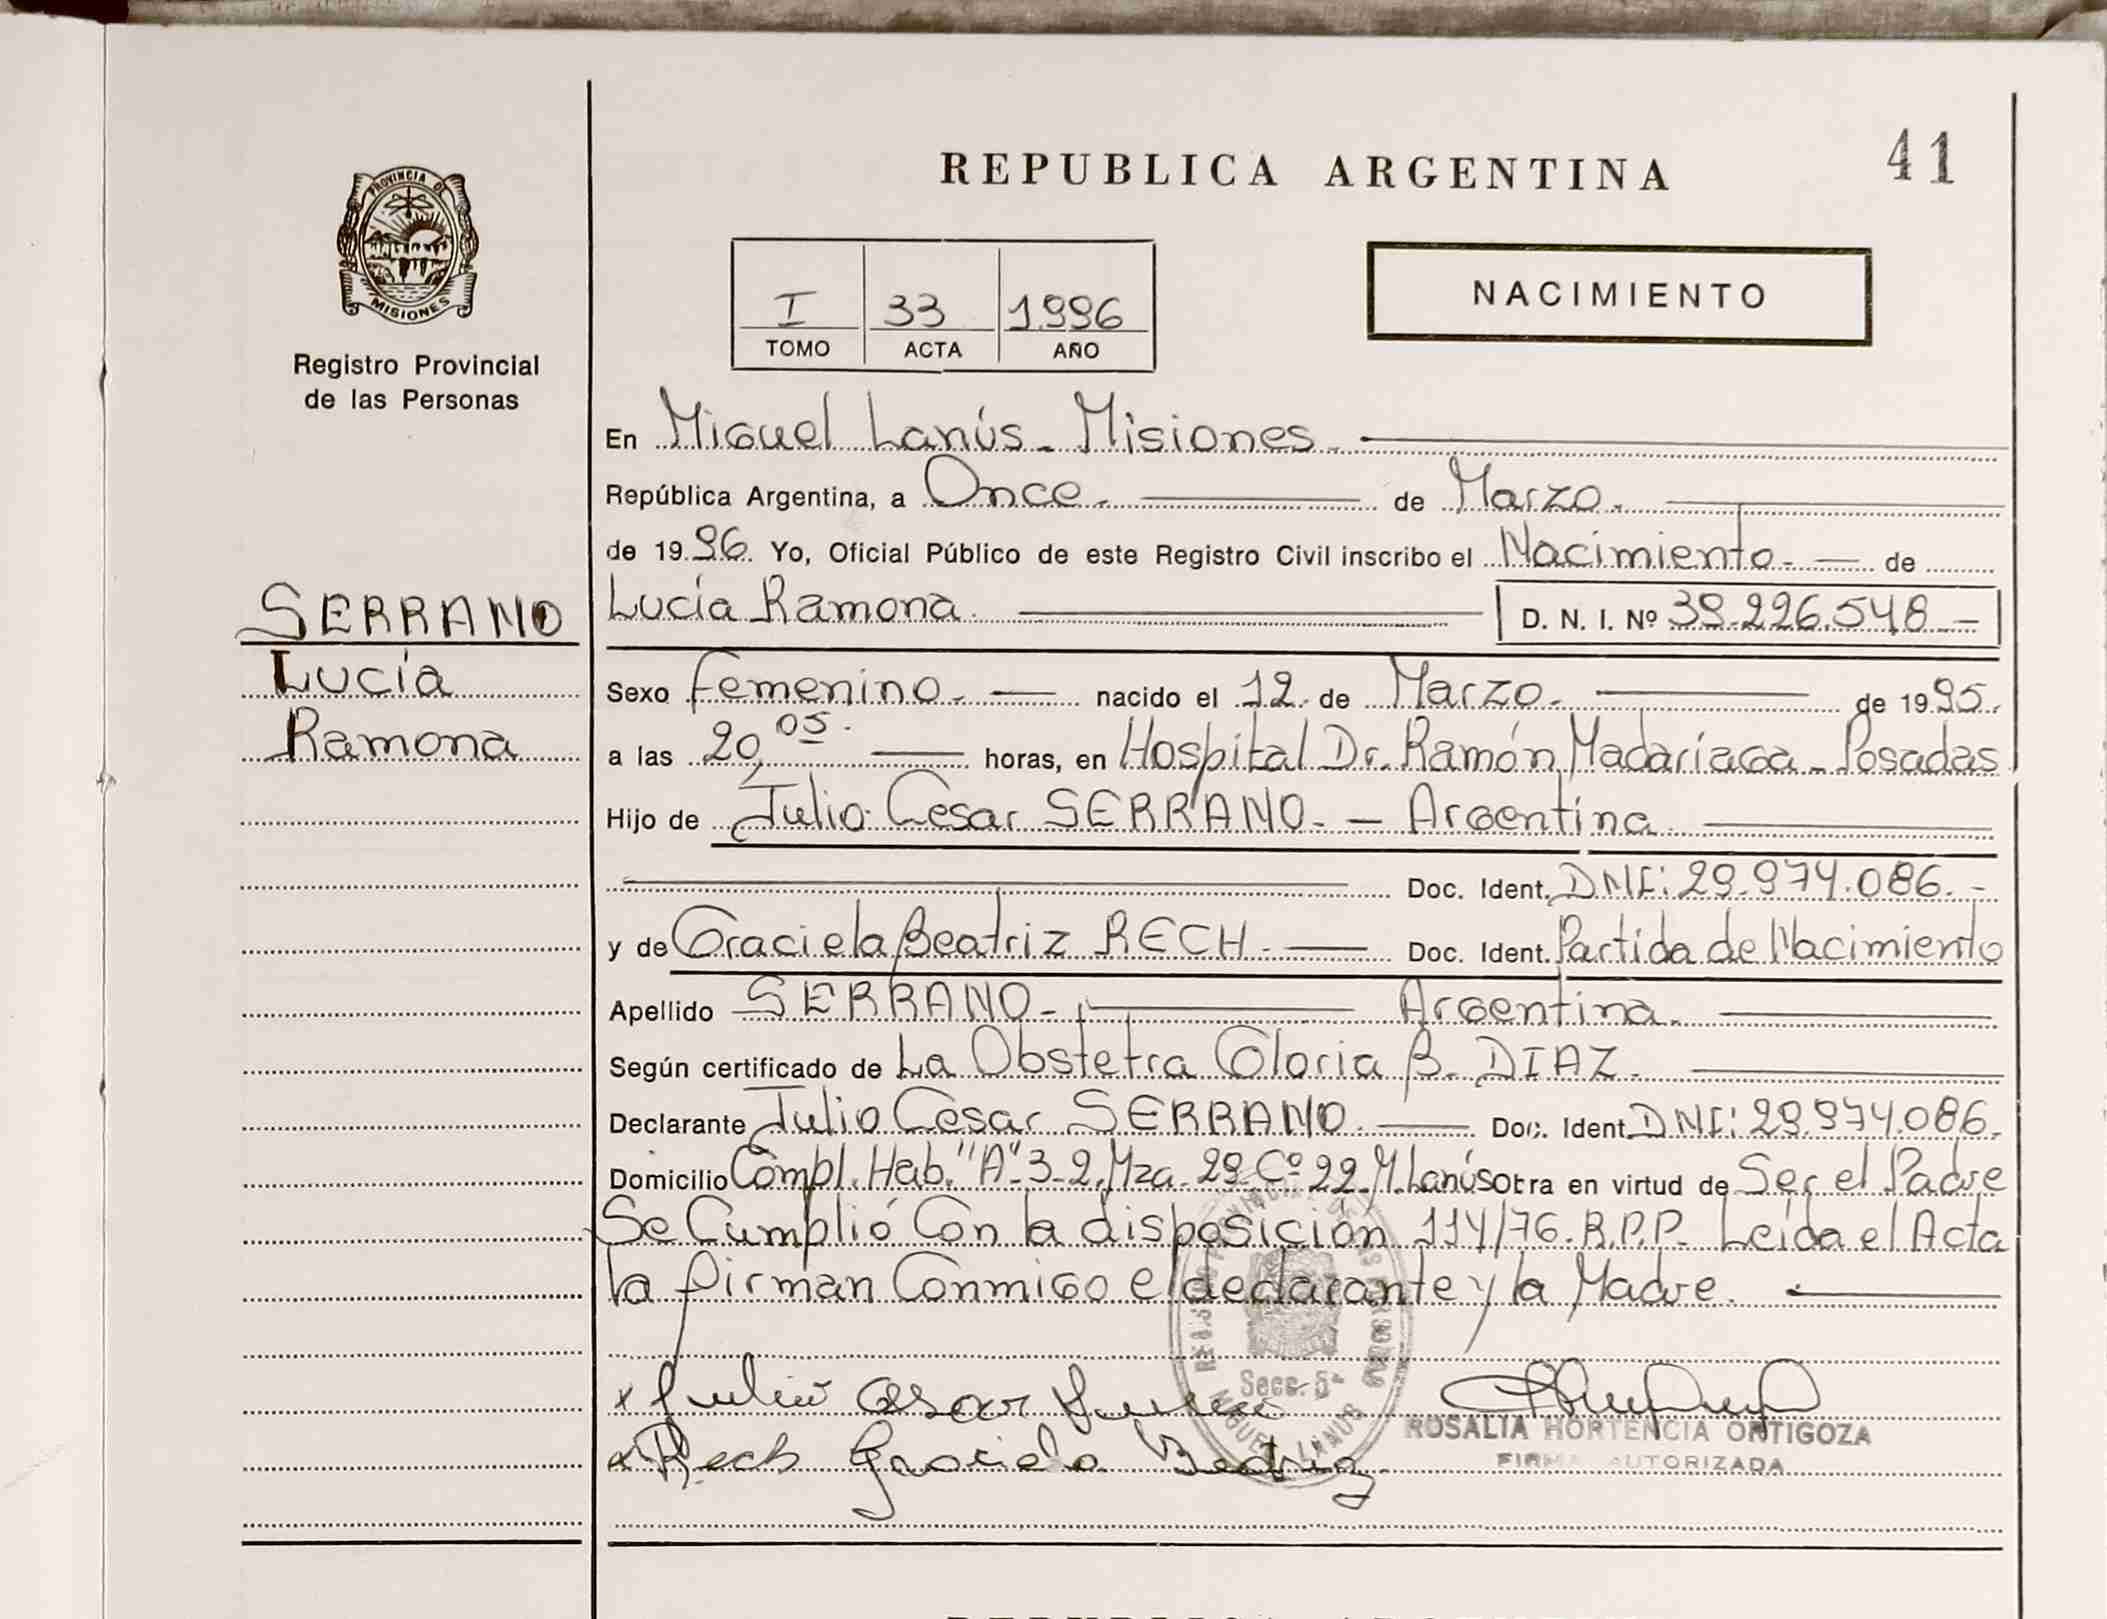 REPUBLICA ARGENTINA
41
PROVINCIA DE
MISIONES
Registro Provincial
de las Personas
I 33 1996
TOMO ACTA AÑO
NACIMIENTO
En Miguel Lanús - Misiones.
República Argentina, a Once. de Marzo.
de 1996. Yo, Oficial Público de este Registro Civil inscribo el Nacimiento. de
SERRANO
Lucía
Ramona
Lucía Ramona. D. N. I. Nº 39.226.548
Sexo femenino. nacido el 12. de Marzo. de 1995.
a las 20,05. horas, en Hospital Dr. Ramón Madariaga - Posadas
Hijo de Julio Cesar SERRANO. - Argentina
Doc. Ident. DNI: 29.974.086. -
y de Graciela Beatriz RECH. Doc. Ident. Partida de Nacimiento
Apellido SERRANO - Argentina.
Según certificado de La Obstetra Gloria B. DIAZ.
Declarante Julio Cesar SERRANO. Doc. Ident. DNI: 29.974.086.
Domicilio Compl. Hab. "A" 3-2. Mza. 29 Cº 22. M. Lanús otra en virtud de Ser el Padre
Se Cumplió Con la disposición 114/76. R.P.P. Leída el Acta
la firman Conmigo el declarante y la Madre.
x Julio Cesar
x Rech Graciela Beatriz
Secc. 5ª
MIGUEL LANUS
ROSALIA HORTENCIA ORTIGOZA
FIRMA AUTORIZADA